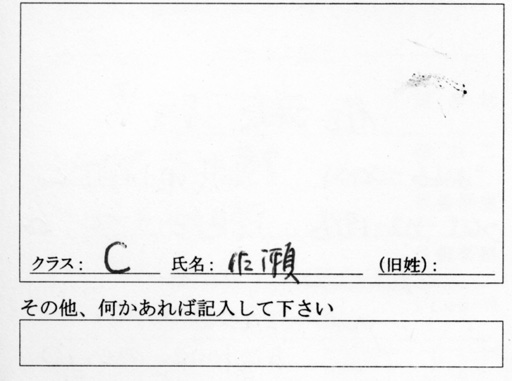 クラス: C 氏名: 佐瀬 (旧姓):
その他、何かあれば記入して下さい